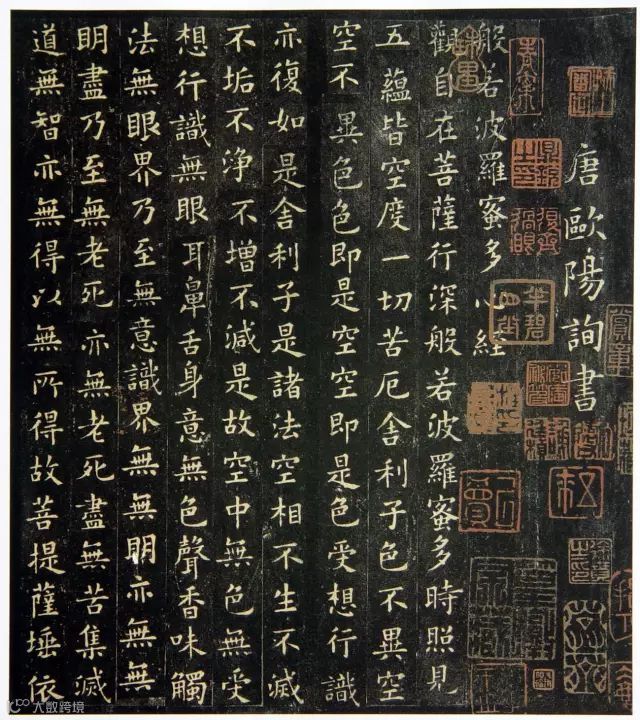 唐歐陽詢書
般若波羅蜜多心經
觀自在菩薩行深般若波羅蜜多時照見
五蘊皆空度一切苦厄舍利子色不異空
空不異色色即是空空即是色受想行識
亦復如是舍利子是諸法空相不生不滅
不垢不淨不增不減是故空中無色無受
想行識無眼耳鼻舌身意無色聲香味觸
法無眼界乃至無意識界無無明亦無無
明盡乃至無老死亦無老死盡無苦集滅
道無智亦無得以無所得故菩提薩埵依
大数跨境